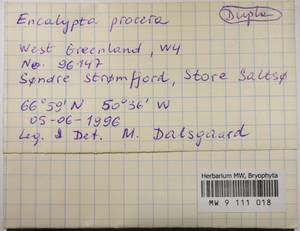 Dupla
Encalypta procera
West Greenland, W4
No. 96-147
Søndre Strømfjord, Store Saltsø
66°59' N 50°36' W
05-06-1996
Leg. & Det. M. Dalsgaard
Herbarium MW, Bryophyta
MW 9 111 018